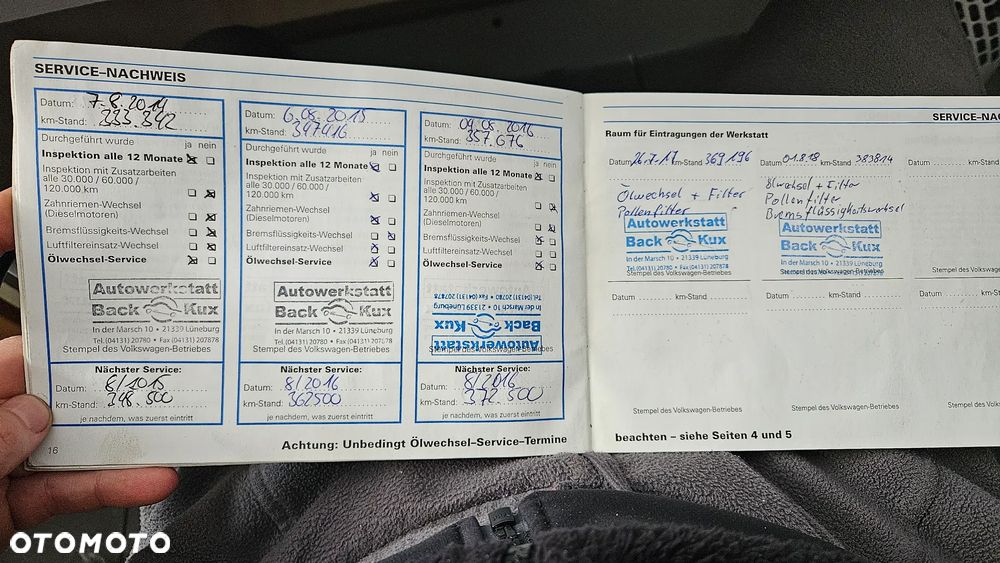 SERVICE–NACHWEIS
Datum: 7.8.2014
km-Stand: 333.342
Durchgeführt wurde ja nein
Inspektion alle 12 Monate
Inspektion mit Zusatzarbeiten
alle 30.000 / 60.000 /
120.000 km
Zahnriemen-Wechsel
(Dieselmotoren)
Bremsflüssigkeits-Wechsel
Luftfiltereinsatz-Wechsel
Ölwechsel-Service
Autowerkstatt
Back Kux
In der Marsch 10 • 21339 Lüneburg
Tel.(04131) 20780 • Fax (04131) 207878
Stempel des Volkswagen-Betriebes
Nächster Service:
Datum: 8/2015
km-Stand: 348.500
je nachdem, was zuerst eintritt
16
Datum: 6.08.2015
km-Stand: 347416
Durchgeführt wurde ja nein
Inspektion alle 12 Monate
Inspektion mit Zusatzarbeiten
alle 30.000 / 60.000 /
120.000 km
Zahnriemen-Wechsel
(Dieselmotoren)
Bremsflüssigkeits-Wechsel
Luftfiltereinsatz-Wechsel
Ölwechsel-Service
Autowerkstatt
Back Kux
In der Marsch 10 • 21339 Lüneburg
Tel.(04131) 20780 • Fax (04131) 207878
Stempel des Volkswagen-Betriebes
Nächster Service:
Datum: 8/2016
km-Stand: 362500
je nachdem, was zuerst eintritt
Datum: 04.08.2016
km-Stand: 357.676
Durchgeführt wurde ja nein
Inspektion alle 12 Monate
Inspektion mit Zusatzarbeiten
alle 30.000 / 60.000 /
120.000 km
Zahnriemen-Wechsel
(Dieselmotoren)
Bremsflüssigkeits-Wechsel
Luftfiltereinsatz-Wechsel
Ölwechsel-Service
Autowerkstatt
Back Kux
In der Marsch 10 • 21339 Lüneburg
Tel.(04131) 20780 • Fax (04131) 207878
Stempel des Volkswagen-Betriebes
Nächster Service:
Datum: 8/2016
km-Stand: 372.500
je nachdem, was zuerst eintritt
Achtung: Unbedingt Ölwechsel–Service–Termine
SERVICE–NA
Raum für Eintragungen der Werkstatt
Datum 26.7.17 km-Stand 369196
Ölwechsel + Filter
Pollenfilter
Autowerkstatt
Back Kux
In der Marsch 10 • 21339 Lüneburg
Tel.(04131) 20780 • Fax (04131) 207878
Stempel des Volkswagen-Betriebes
Datum 01.8.18 km-Stand 383814
Ölwechsel + Filter
Pollenfilter
Bremsflüssigkeitswechsel
Autowerkstatt
Back Kux
In der Marsch 10 • 21339 Lüneburg
Stempel des Volkswagen-Betriebes
Datum km-Stand
Stempel des Volkswagen
Datum km-Stand
Datum km-Stand
Datum km-Stand
Stempel des Volkswagen-Betriebes
Stempel des Volkswagen-Betriebes
Stempel des Volkswagen
beachten – siehe Seiten 4 und 5
OTOMOTO